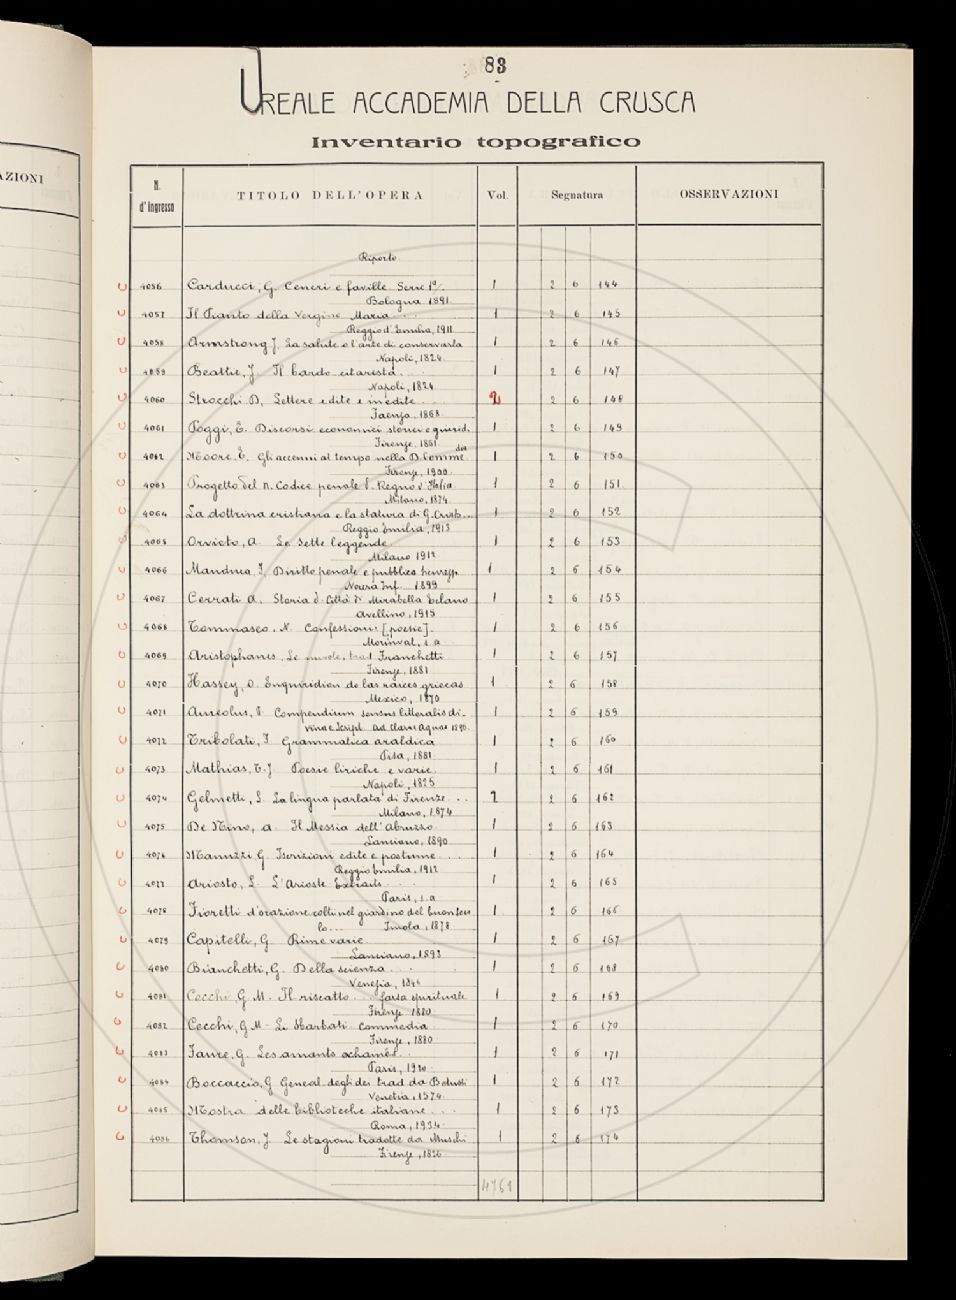 AZIONI
83
REALE ACCADEMIA DELLA CRUSCA
Inventario topografico
N. d'ingresso TITOLO DELL'OPERA Vol. Segnatura OSSERVAZIONI
Riporto
4056 Carducci, G. Ceneri e faville Serie 1ª. 1 2 6 144
Bologna 1891
4057 Il Pianto della Vergine Maria 1 2 6 145
Reggio d'Emilia, 1911
4058 Armstrong J. La salute o l'arte di conservarla 1 2 6 146
Napoli, 1824
4059 Beattie, J. Il bardo citarista 1 2 6 147
Napoli, 1824
4060 Strocchi D. Lettere edite e inedite 2 2 6 148
Faenza, 1868
4061 Poggi, E. Discorsi economici storici e giurid. 1 2 6 149
Firenze, 1861
4062 Moore, E. Gli accenni al tempo nella D. Comme dia 1 2 6 150
Firenze, 1900
4063 Progetto del n. Codice penale d. Regno d'Italia 1 2 6 151
Milano, 1874
4064 La dottrina cristiana e la statura di G. Cristo... 1 2 6 152
Reggio Emilia, 1913
4065 Orvieto, A. Le sette leggende 1 2 6 153
Milano 1912
4066 Manduca, J. Diritto penale e pubblico 1 2 6 154
Nocera Inf. 1899
4067 Cerrati A. Storia d. Città di Mirabella Eclano 1 2 6 155
Avellino, 1915
4068 Tommaseo. N. Confessioni [poesie]. 1 2 6 156
s.a.
4069 Aristophanes. Le nuvole, trad Franchetti 1 2 6 157
Firenze, 1881
4070 Hassey, O. Enquiridion de las raices griecas 1 2 6 158
Mexico, 1870
4071 Aureolus, P. Compendium sensus litteralis di- 1 2 6 159
vinae Script. Ad Claras Aquas 1896
4072 Tribolati, F. Grammatica araldica 1 2 6 160
Pisa, 1881
4073 Mathias, T. J. Poesie liriche e varie. 1 2 6 161
Napoli, 1825
4074 Gelmetti, L. La lingua parlata di Firenze... 2 2 6 162
Milano, 1874
4075 De Nino, A. Il Messia dell'Abruzzo 1 2 6 163
Lanciano, 1890
4076 Manuzzi G. Iscrizioni edite e postume 1 2 6 164
Reggio Emilia, 1912
4077 Ariosto, L. L'Arioste Extraits 1 2 6 165
Paris, s.a.
4078 Fioretti d'orazione colti nel giardino del buon Gesu 1 2 6 166
Imola, 1878
4079 Capitelli, G. Rime varie 1 2 6 167
Lanciano, 1893
4080 Bianchetti, G. Della scienza 1 2 6 168
Venezia,
4081 Cecchi, G. M. Il riscatto... farsa spirituale 1 2 6 169
Firenze 1880
4082 Cecchi, G. M. Lo Sbarbati. Commedia 1 2 6 170
Firenze, 1880
4083 Faure, G. Les amants enchainés 1 2 6 171
Paris, 1920
4084 Boccaccio, G. Geneal. degli dei trad da Betussi 1 2 6 172
Venetia, 1574
4085 Mostra delle biblioteche italiane 1 2 6 173
Roma, 1934
4086 Thomson, J. Le stagioni tradotte da Muschi 1 2 6 174
Firenze, 1826
4761